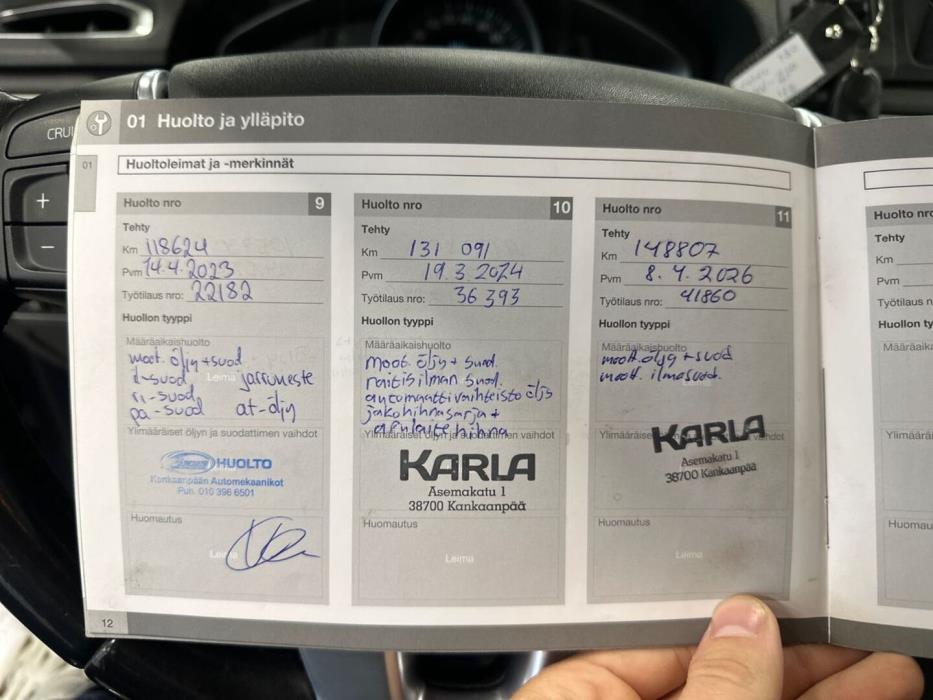 CRUI
+
−
01 Huolto ja ylläpito
01
Huoltoleimat ja -merkinnät
Huolto nro 9
Tehty
Km 118624
Pvm 14.4.2023
Työtilaus nro: 22182
Huollon tyyppi
Määräaikaishuolto
moot. öljy+suod
i-suod jarruneste
ri-suod
pa-suod at-öljy
Leima
Ylimääräiset öljyn ja suodattimen vaihdot
HUOLTO
Kankaanpään Automekaanikot
Puh. 010 396 6501
Huomautus
Leima
Huolto nro 10
Tehty
Km 131 091
Pvm 19.3 2024
Työtilaus nro: 36 393
Huollon tyyppi
Määräaikaishuolto
moot. öljy + suod.
raitis ilman suod.
automaattivaihteisto öljy
jakohihnasarja +
apulaite hihna
Ylimääräiset öljyn ja suodattimen vaihdot
KARLA
Asemakatu 1
38700 Kankaanpää
Huomautus
Leima
Huolto nro 11
Tehty
Km 148807
Pvm 8. 4. 2026
Työtilaus nro: 41860
Huollon tyyppi
Määräaikaishuolto
moott. öljy + suod
moott. ilmasuod.
Ylimääräise vaihdot
KARLA
Asemakatu 1
38700 Kankaanpää
Huomautus
Leima
12
Huolto nro
Tehty
Km
Pvm
Työtilaus n
Huollon ty
Määräaika
Ylimääräi
Huomau